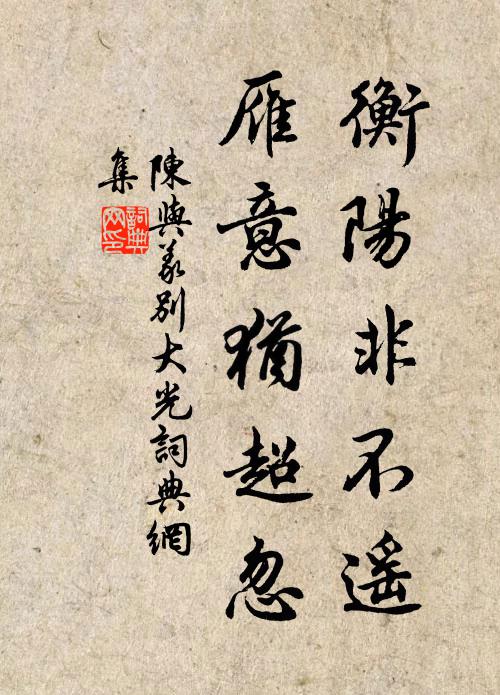 衡陽非不遥
雁意猶超忽
陳與義别大光詞典網
集
詞典
网印